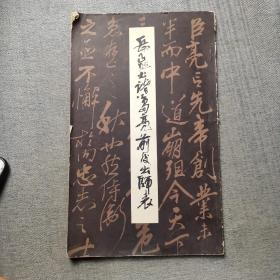 臣亮言先帝創業未
半而中道崩殂今天下
三
岳飛书諸葛亮前後出師表
秋也然侍衛
之臣不懈於内忠志之士